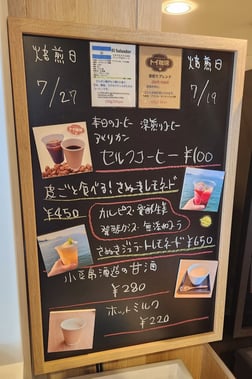 焙煎日
7/27
El Salvador
トイ珈琲
焙煎日
7/19
本日のコーヒー 深煎りコーヒー
アメリカン
セルフコーヒー ¥100
皮ごと食べる!さぬきレモネード
¥450
カルピス・発酵生姜
発酵ゆず・無添加ゆう
さぬきジェラートレモネード ¥650
小豆島酒造の甘酒
¥280
ホットミルク
¥220